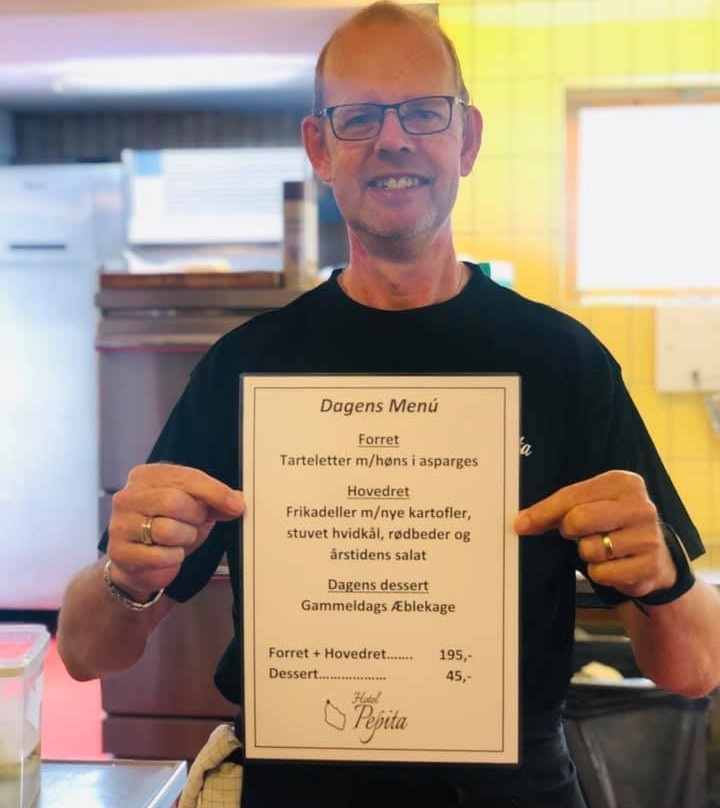 Dagens Menú
Forret
Tarteletter m/høns i asparges
Hovedret
Frikadeller m/nye kartofler,
stuvet hvidkål, rødbeder og
årstidens salat
Dagens dessert
Gammeldags Æblekage
Forret + Hovedret....... 195,-
Dessert.................. 45,-
Hotel
Pepita